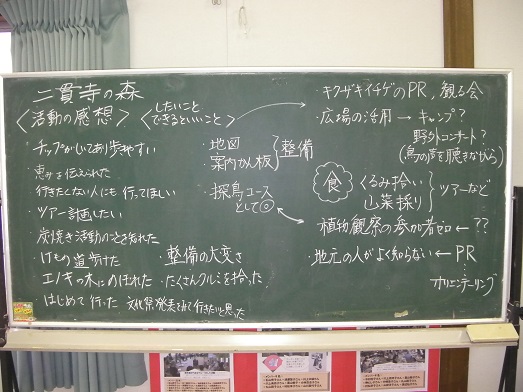 二貫寺の森
〈活動の感想〉
・チップがしいてあり歩きやすい
・恵みを伝えられた
行きたくない人にも行ってほしい
・ツアー計画したい
・炭焼き活動のことを知れた
・けもの道歩けた
・エノキの木にのぼれた
・はじめて行った 文化祭発表をみて行きたいと思った
・整備の大変さ
・たくさんクルミを拾った
〈したいこと
できるといいこと〉
・地図
・案内かん板
整備
・探鳥コース
として◎
・キクザキイチゲのPR、観る会
・広場の活用→キャンプ?
野外コンサート?
(鳥の声を聴きながら)
食
くるみ拾い
山菜採り
ツアーなど
植物観察の参加者ゼロ←??
・地元の人がよく知らない←PR
オリエンテーリング